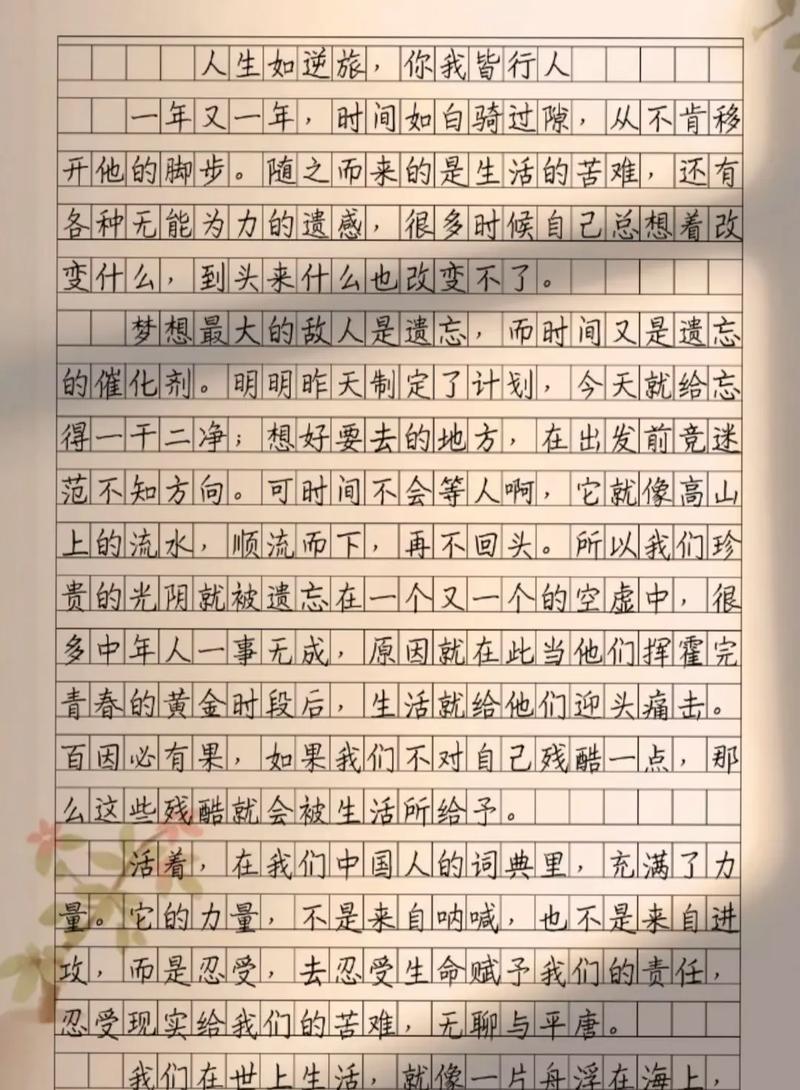 人生如逆旅，你我皆行人
一年又一年，时间如白骑过隙，从不肯移
开他的脚步。随之而来的是生活的苦难，还有
各种无能为力的遗感，很多时候自己总想着改
变什么，到头来什么也改变不了。
梦想最大的敌人是遗忘，而时间又是遗忘
的催化剂。明明昨天制定了计划，今天就给忘
得一干二净；想好要去的地方，在出发前竞迷
范不知方向。可时间不会等人啊，它就像高山
上的流水，顺流而下，再不回头。所以我们珍
贵的光阴就被遗忘在一个又一个的空虚中，很
多中年人一事无成，原因就在此当他们挥霍完
青春的黄金时段后，生活就给他们迎头痛击。
百因必有果，如果我们不对自己残酷一点，那
么这些残酷就会被生活所给予。
活着，在我们中国人的词典里，充满了力
量。它的力量，不是来自呐喊，也不是来自进
攻，而是忍受，去忍受生命赋予我们的责任，
忍受现实给我们的苦难，无聊与平唐。
我们在世上生活，就像一片舟浮在海上，